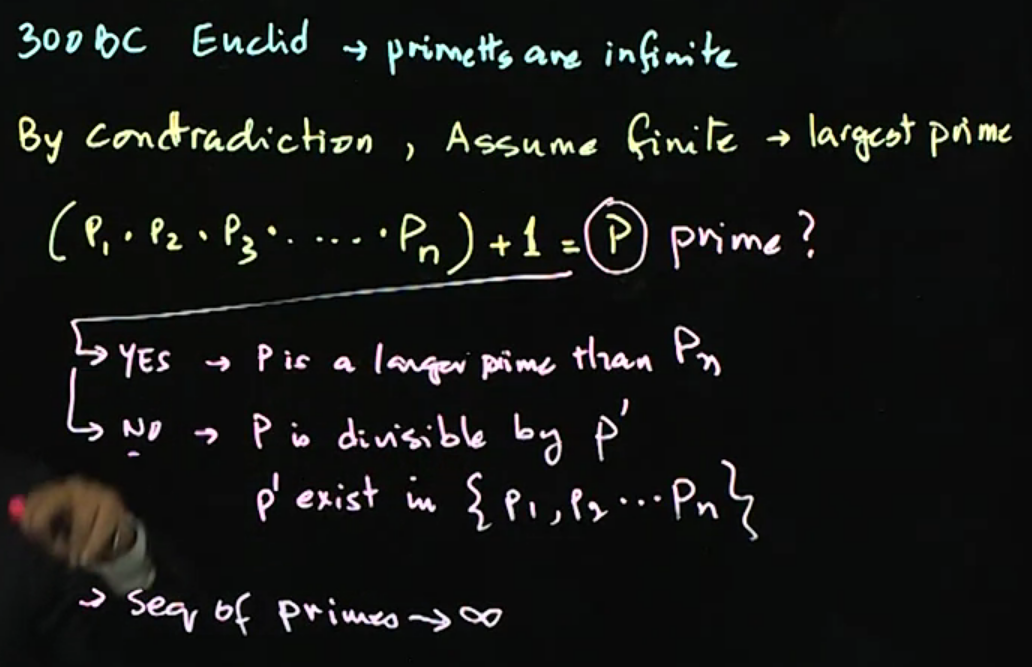 300 BC Euclid → primetts are infinite
By contradiction, Assume finite → largest prime
(P₁ · P₂ · P₃ · ..... · Pₙ) + 1 = P prime?
↳ YES → P is a larger prime than Pₙ
↳ NO → P is divisible by p'
p' exist in {P₁, P₂ ... Pₙ}
→ Seq of primes → ∞